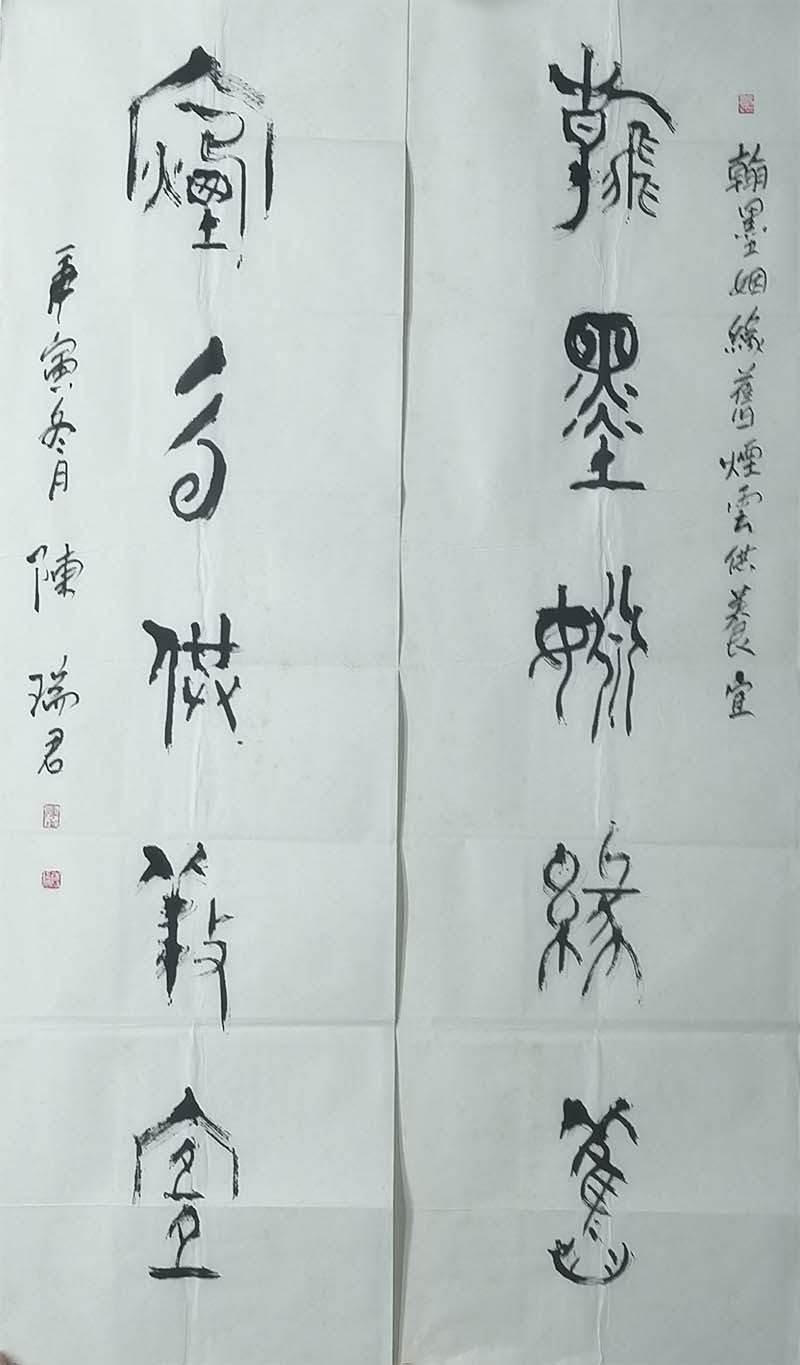 翰墨姻緣舊煙雲供養宜
翰墨姻緣舊
煙云供養宜
庚寅冬月 陳瑞君